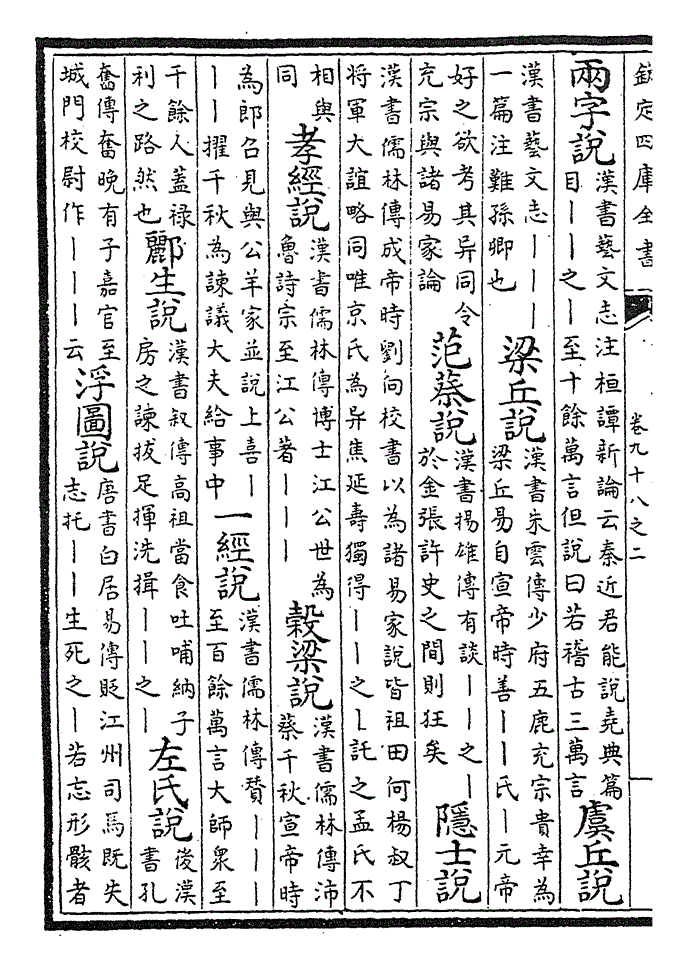 欽定四庫全書 卷九十八之二
兩字說
漢書藝文志注桓譚新論云秦近君能說堯典篇
目丨丨之丨至十餘萬言但說曰若稽古三萬言
虞丘說
漢書藝文志丨丨丨
一篇注難孫卿也
梁丘說
漢書朱雲傳少府五鹿充宗貴幸為
梁丘易自宣帝時善丨丨氏丨元帝
好之欲考其异同令
充宗與諸易家論
范蔡說
漢書揚雄傳有談丨丨之丨
於金張許史之間則狂矣
隱士說
漢書儒林傳成帝時劉向校書以為諸易家說皆祖田何楊叔丁
將軍大誼略同唯京氏為异焦延壽獨得丨丨之丨託之孟氏不
相與
同
孝經說
漢書儒林傳博士江公世為
魯詩宗至江公著丨丨丨
榖梁說
漢書儒林傳沛
蔡千秋宣帝時
為郎召見與公羊家並說上喜丨
丨丨擢千秋為諫議大夫給事中
一經說
漢書儒林傳贊丨丨丨
至百餘萬言大師衆至
千餘人蓋祿
利之路然也
酈生說
漢書叙傳高祖當食吐哺納子
房之諫拔足揮洗揖丨丨之丨
左氏說
後漢
書孔
奮傳奮晚有子嘉官至
城門校尉作丨丨丨云
浮圖說
唐書白居易傳貶江州司馬既失
志托丨丨生死之丨若忘形骸者